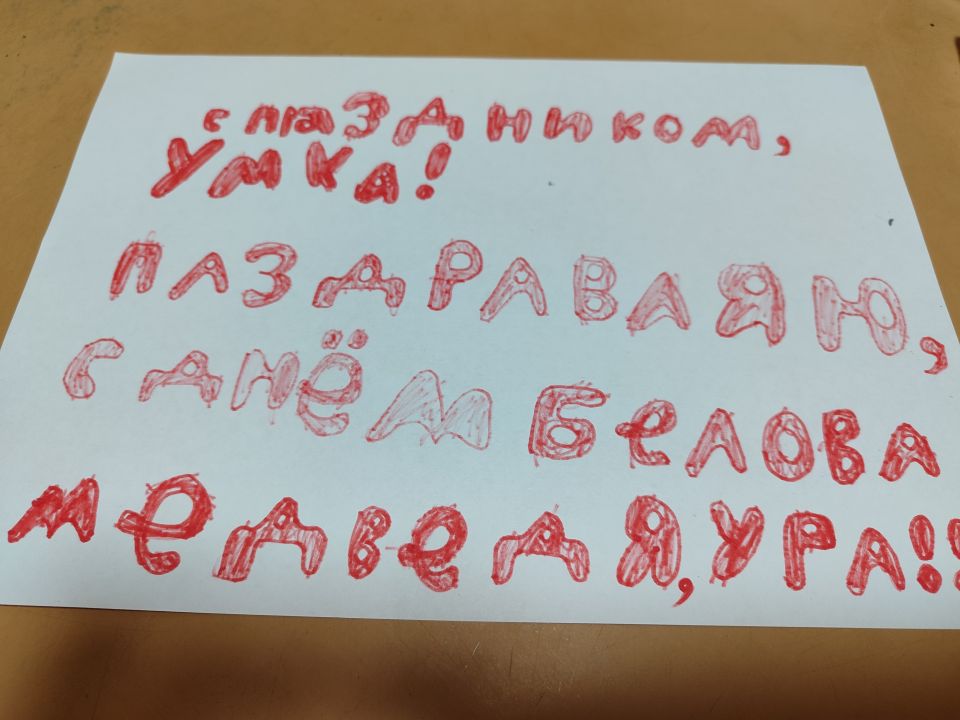 с праздником,
Умка!
паздраваяю,
с днём белова
медведя, ура!!!